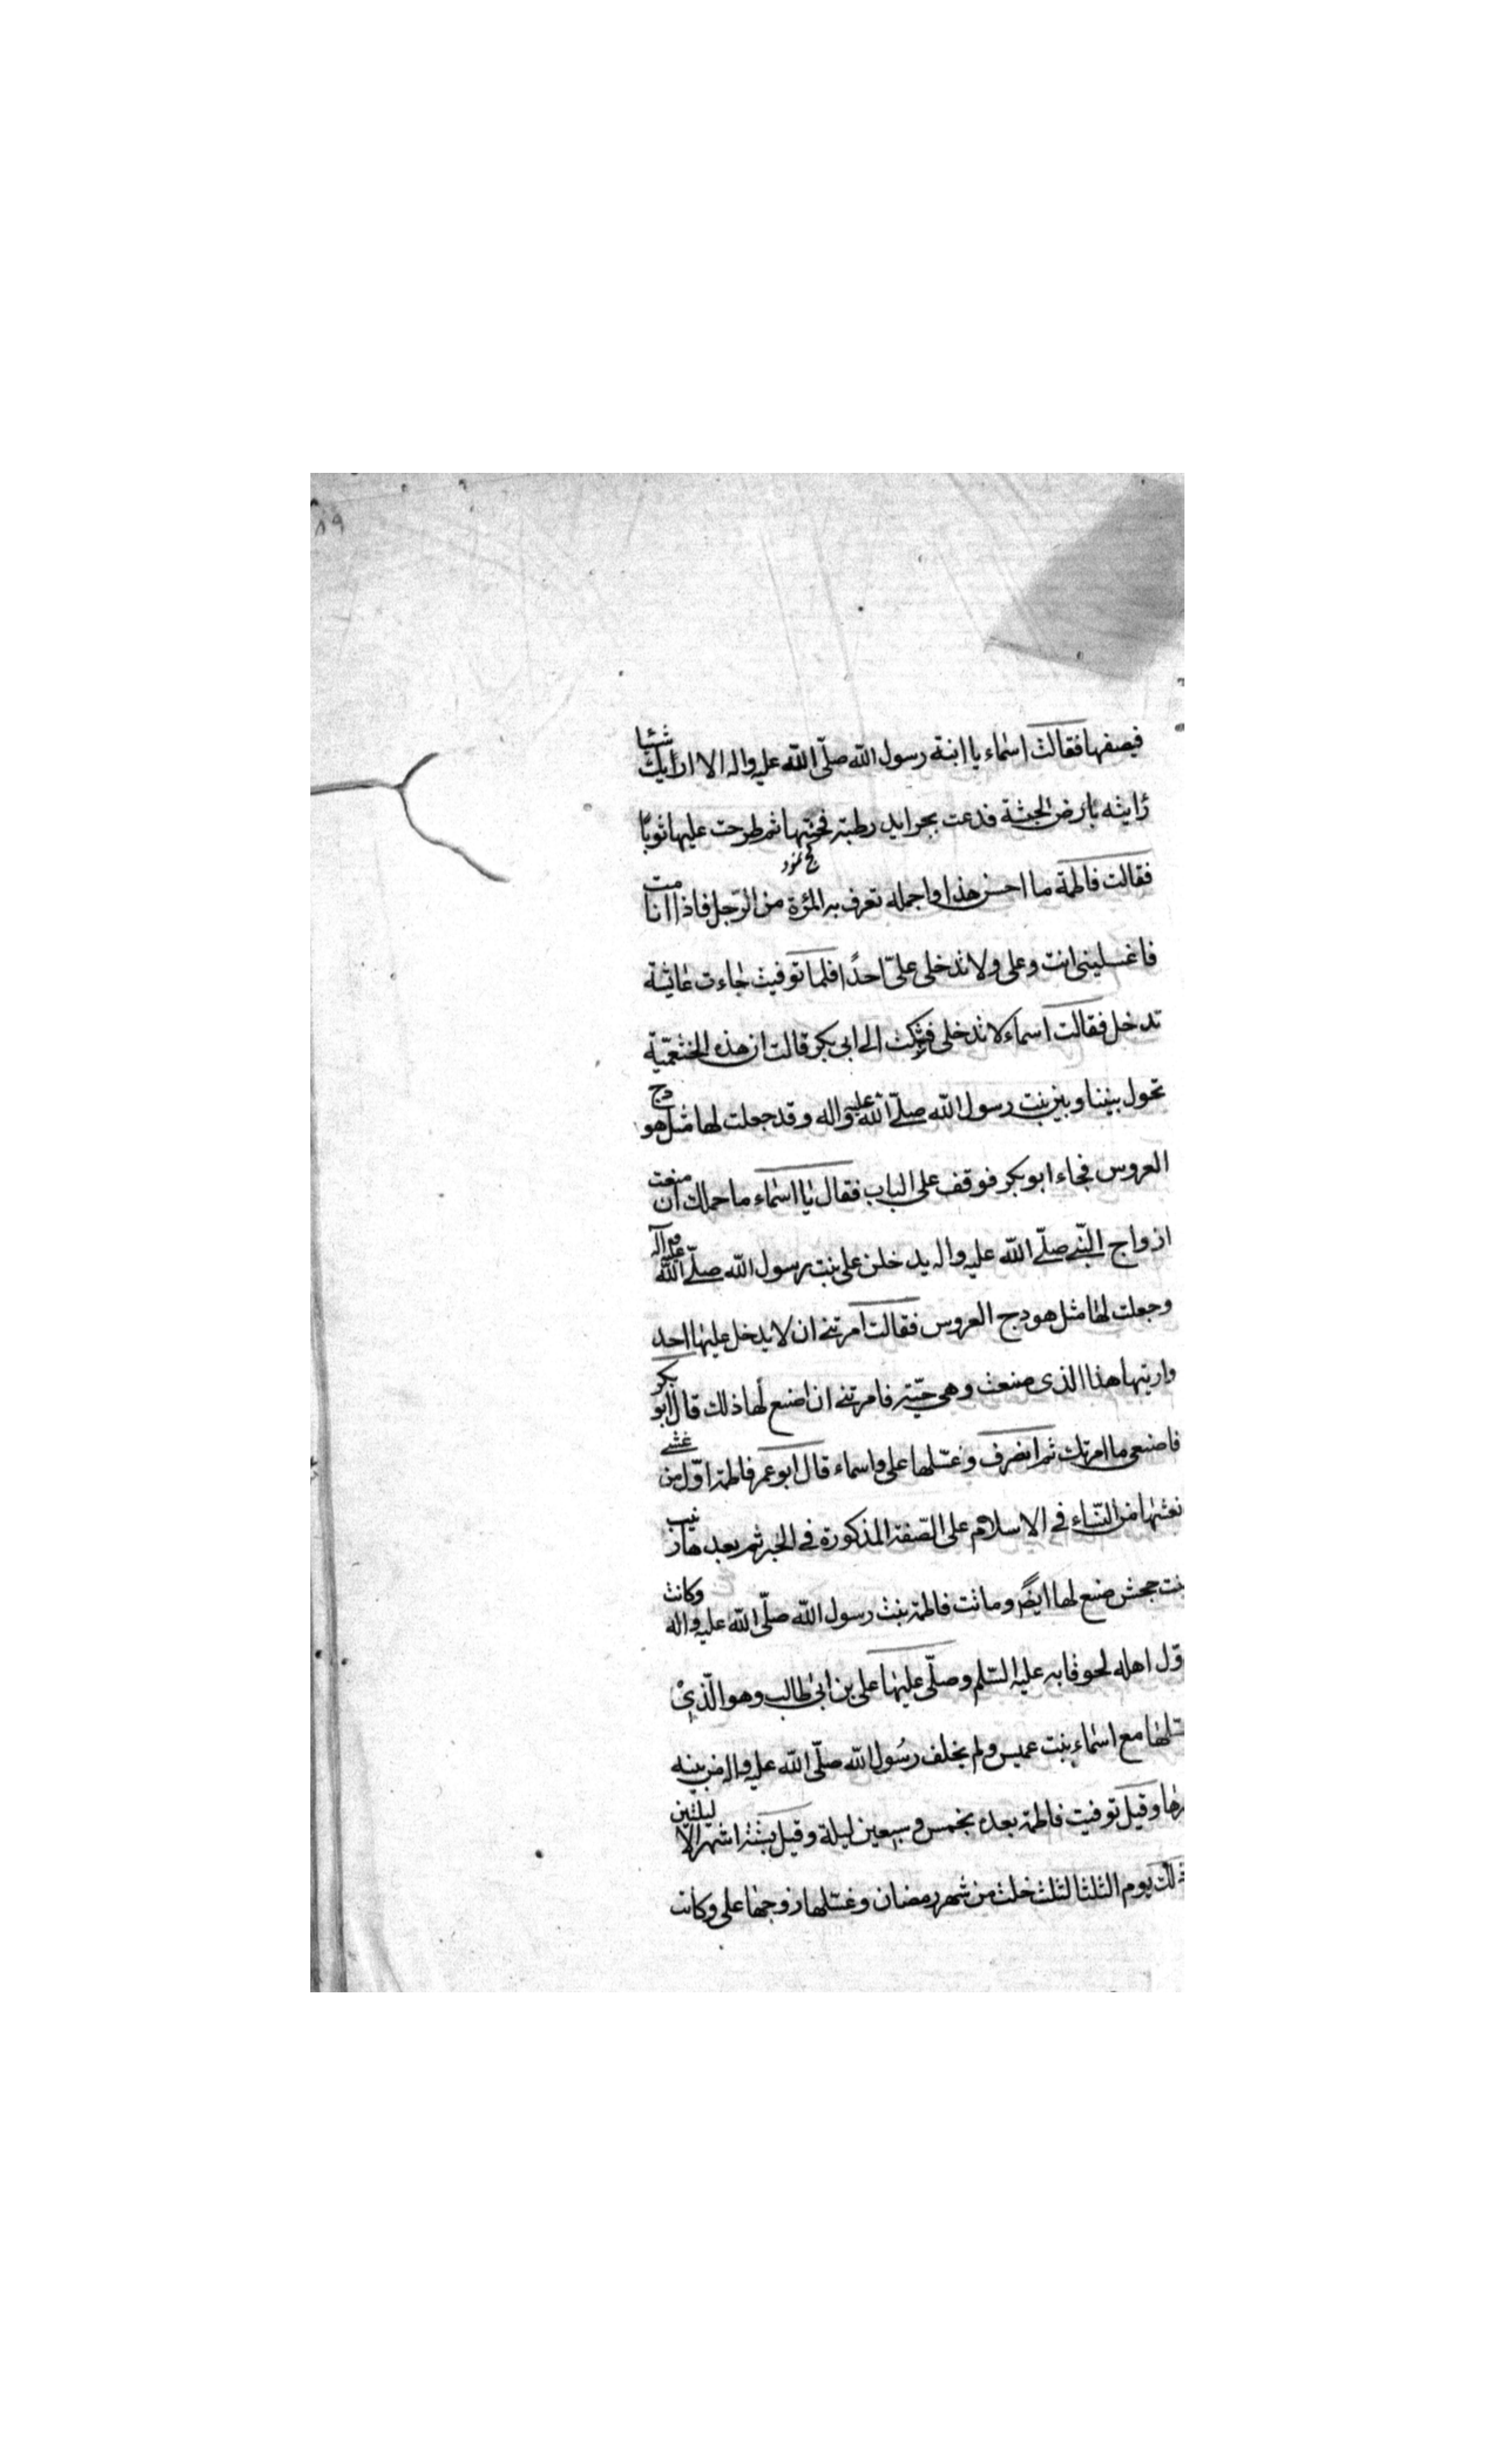 ٨٩
فيصفها فقالت اسماء يا ابنة رسول الله صلّى الله عليه واله الا ارايك شئا
رايته بارض الحبشة فدعت بجرايد رطبة فحنتها ثم طرحت عليها ثوبا
فقالت فاطمة ما احسن هذا واجمله تعرف به المرئة من الرّجل فاذا انا مت
فاغسلينى انت وعلى ولا تدخلى علىّ احدًا فلما توفيت جاءت عائشة
تدخل فقالت اسماء لا تدخلى فشكت الى ابى بكر قالت ان هذه الخثعميّة
تحول بيننا وبين بنت رسول الله صلّى الله عليه واله وقد جعلت لها مثل هودج
العروس فجاء ابو بكر فوقف على الباب فقال يا اسماء ما حملك ان منعت
ازواج النّبى صلّى الله عليه واله يدخلن على بنت رسول الله صلّى الله عليه وآله
وجعلت لها مثل هودج العروس فقالت امرتنى ان لا يدخل عليها احد
واريتها هذا الذى صنعت وهى حيّة فامرتنى ان اصنع لها ذلك قال ابو بكر
فاصنعى ما امرتك ثم انصرف وغسّلها على واسماء قال ابو عمر فاطمة اوّل من غشى
نعشها من النّساء فى الاسلام على الصّفة المذكورة فى الخبر ثم بعدها زينب
بنت جحش صنع لها ايضًا وماتت فاطمة بنت رسول الله صلّى الله عليه واله وكانت
وّل اهله لحوقا به عليه السّلم وصلّى عليها على بن ابى طالب وهو الّذى
سّلها مع اسماء بنت عميس ولم يخلف رسول الله صلّى الله عليه واله من بنيه
رها وقيل توفيت فاطمة بعده بخمس وسبعين ليلة وقيل بستة اشهر الا ليلتين
ذلك يوم الثلثا لثلث خلت من شهر رمضان وغسّلها زوجها على وكانت